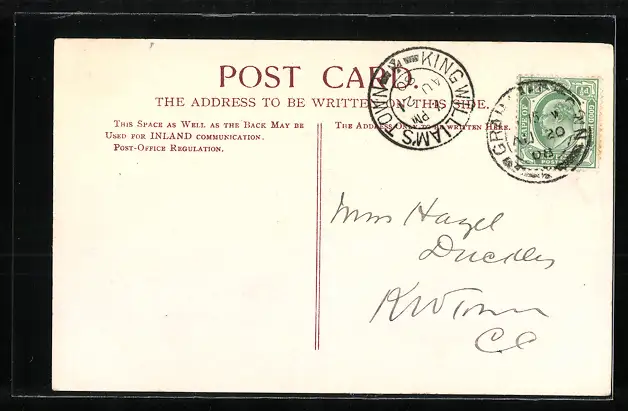 POST CARD.
THE ADDRESS TO BE WRITTEN ON THIS SIDE.
THIS SPACE AS WELL AS THE BACK MAY BE
USED FOR INLAND COMMUNICATION.
POST-OFFICE REGULATION.
THE ADDRESS ONLY TO BE WRITTEN HERE.
KING WILLIAM'S TOWN
PM
20
08
GOOD HOPE
POST
Miss Hazel
KWTown
CC